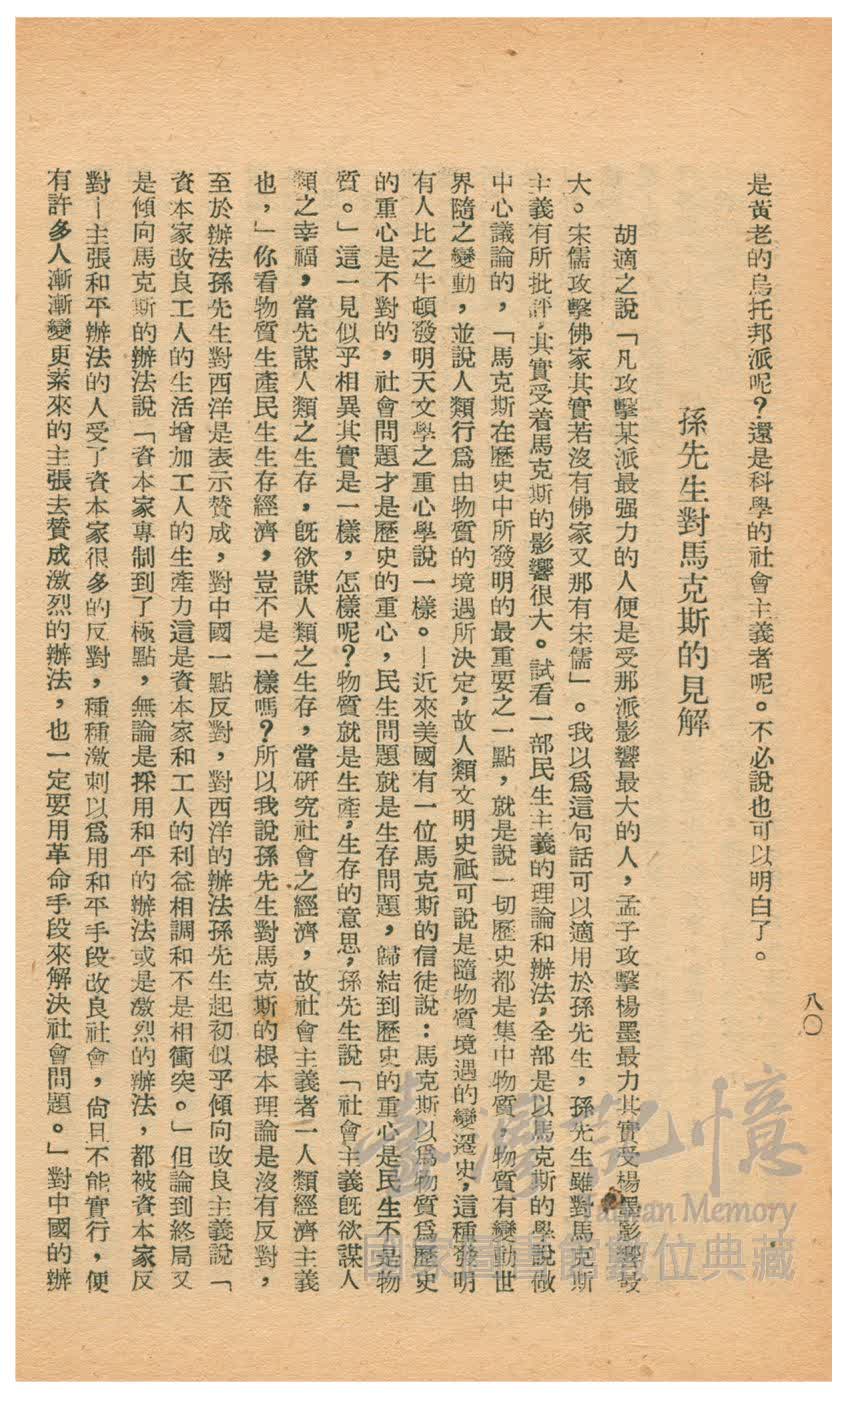 八〇
是黃老的烏托邦派呢?還是科學的社會主義者呢。不必說也可以明白了。
孫先生對馬克斯的見解
胡適之說「凡攻擊某派最强力的人便是受那派影響最大的人,孟子攻擊楊墨最力其實受楊墨影響最
大。宋儒攻擊佛家其實若沒有佛家又那有宋儒」。我以爲這句話可以適用於孫先生,孫先生雖對馬克斯
主義有所批評,其實受着馬克斯的影響很大。試看一部民生主義的理論和辦法,全部是以馬克斯的學說做
中心議論的,「馬克斯在歷史中所發明的最重要之一點,就是說一切歷史都是集中物質,物質有變動世
界隨之變動,並說人類行爲由物質的境遇所決定,故人類文明史祗可說是隨物質境遇的變遷史,這種發明
有人比之牛頓發明天文學之重心學說一樣。—近來美國有一位馬克斯的信徒說:馬克斯以爲物質爲歷史
的重心是不對的,社會問題才是歷史的重心,民生問題就是生存問題,歸結到歷史的重心是民生不是物
質。」這一見似乎相異其實是一樣,怎樣呢?物質就是生產,生存的意思,孫先生說「社會主義旣欲謀人
類之幸福,當先謀人類之生存,旣欲謀人類之生存,當硏究社會之經濟,故社會主義者一人類經濟主義
也,」你看物質生產民生生存經濟,豈不是一樣嗎?所以我說孫先生對馬克斯的根本理論是沒有反對,
至於辦法孫先生對西洋是表示贊成,對中國一點反對,對西洋的辦法孫先生起初似乎傾向改良主義說「
資本家改良工人的生活增加工人的生產力這是資本家和工人的利益相調和不是相衝突。」但論到終局又
是傾向馬克斯的辦法說「資本家專制到了極點,無論是採用和平的辦法或是激烈的辦法,都被資本家反
對—主張和平辦法的人受了資本家很多的反對,種種激刺以爲用和平手段改良社會,尙且不能實行,便
有許多人漸漸變更素來的主張去贊成激烈的辦法,也一定要用革命手段來解決社會問題。」對中國的辦
臺灣記憶
Taiwan Memory
國家圖書館數位典藏